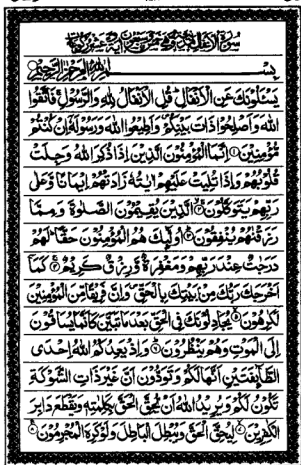 بسم الله الرحمن الرحيم
يَسْـَٔلُوْنَكَ عَنِ الْاَنْفَالِ قُلِ الْاَنْفَالُ لِلّٰهِ وَالرَّسُوْلِ فَاتَّقُوا
اللّٰهَ وَاَصْلِحُوْا ذَاتَ بَيْنِكُمْ وَاَطِيْعُوا اللّٰهَ وَرَسُوْلَهٗٓ اِنْ كُنْتُمْ
مُّؤْمِنِيْنَ ① اِنَّمَا الْمُؤْمِنُوْنَ الَّذِيْنَ اِذَا ذُكِرَ اللّٰهُ وَجِلَتْ
قُلُوْبُهُمْ وَاِذَا تُلِيَتْ عَلَيْهِمْ اٰيٰتُهٗ زَادَتْهُمْ اِيْمَانًا وَّعَلٰى
رَبِّهِمْ يَتَوَكَّلُوْنَ ② الَّذِيْنَ يُقِيْمُوْنَ الصَّلٰوةَ وَمِمَّا
رَزَقْنٰهُمْ يُنْفِقُوْنَ ③ اُولٰٓئِكَ هُمُ الْمُؤْمِنُوْنَ حَقًّا لَهُمْ
دَرَجٰتٌ عِنْدَ رَبِّهِمْ وَمَغْفِرَةٌ وَّرِزْقٌ كَرِيْمٌ ④ كَمَآ
اَخْرَجَكَ رَبُّكَ مِنْ بَيْتِكَ بِالْحَقِّ وَاِنَّ فَرِيْقًا مِّنَ الْمُؤْمِنِيْنَ
لَكٰرِهُوْنَ ⑤ يُجَادِلُوْنَكَ فِي الْحَقِّ بَعْدَ مَا تَبَيَّنَ كَاَنَّمَا يُسَاقُوْنَ
اِلَى الْمَوْتِ وَهُمْ يَنْظُرُوْنَ ⑥ وَاِذْ يَعِدُكُمُ اللّٰهُ اِحْدَى
الطَّآئِفَتَيْنِ اَنَّهَا لَكُمْ وَتَوَدُّوْنَ اَنَّ غَيْرَ ذَاتِ الشَّوْكَةِ
تَكُوْنُ لَكُمْ وَيُرِيْدُ اللّٰهُ اَنْ يُّحِقَّ الْحَقَّ بِكَلِمٰتِهٖ وَيَقْطَعَ دَابِرَ
الْكٰفِرِيْنَ ⑦ لِيُحِقَّ الْحَقَّ وَيُبْطِلَ الْبَاطِلَ وَلَوْ كَرِهَ الْمُجْرِمُوْنَ ⑧